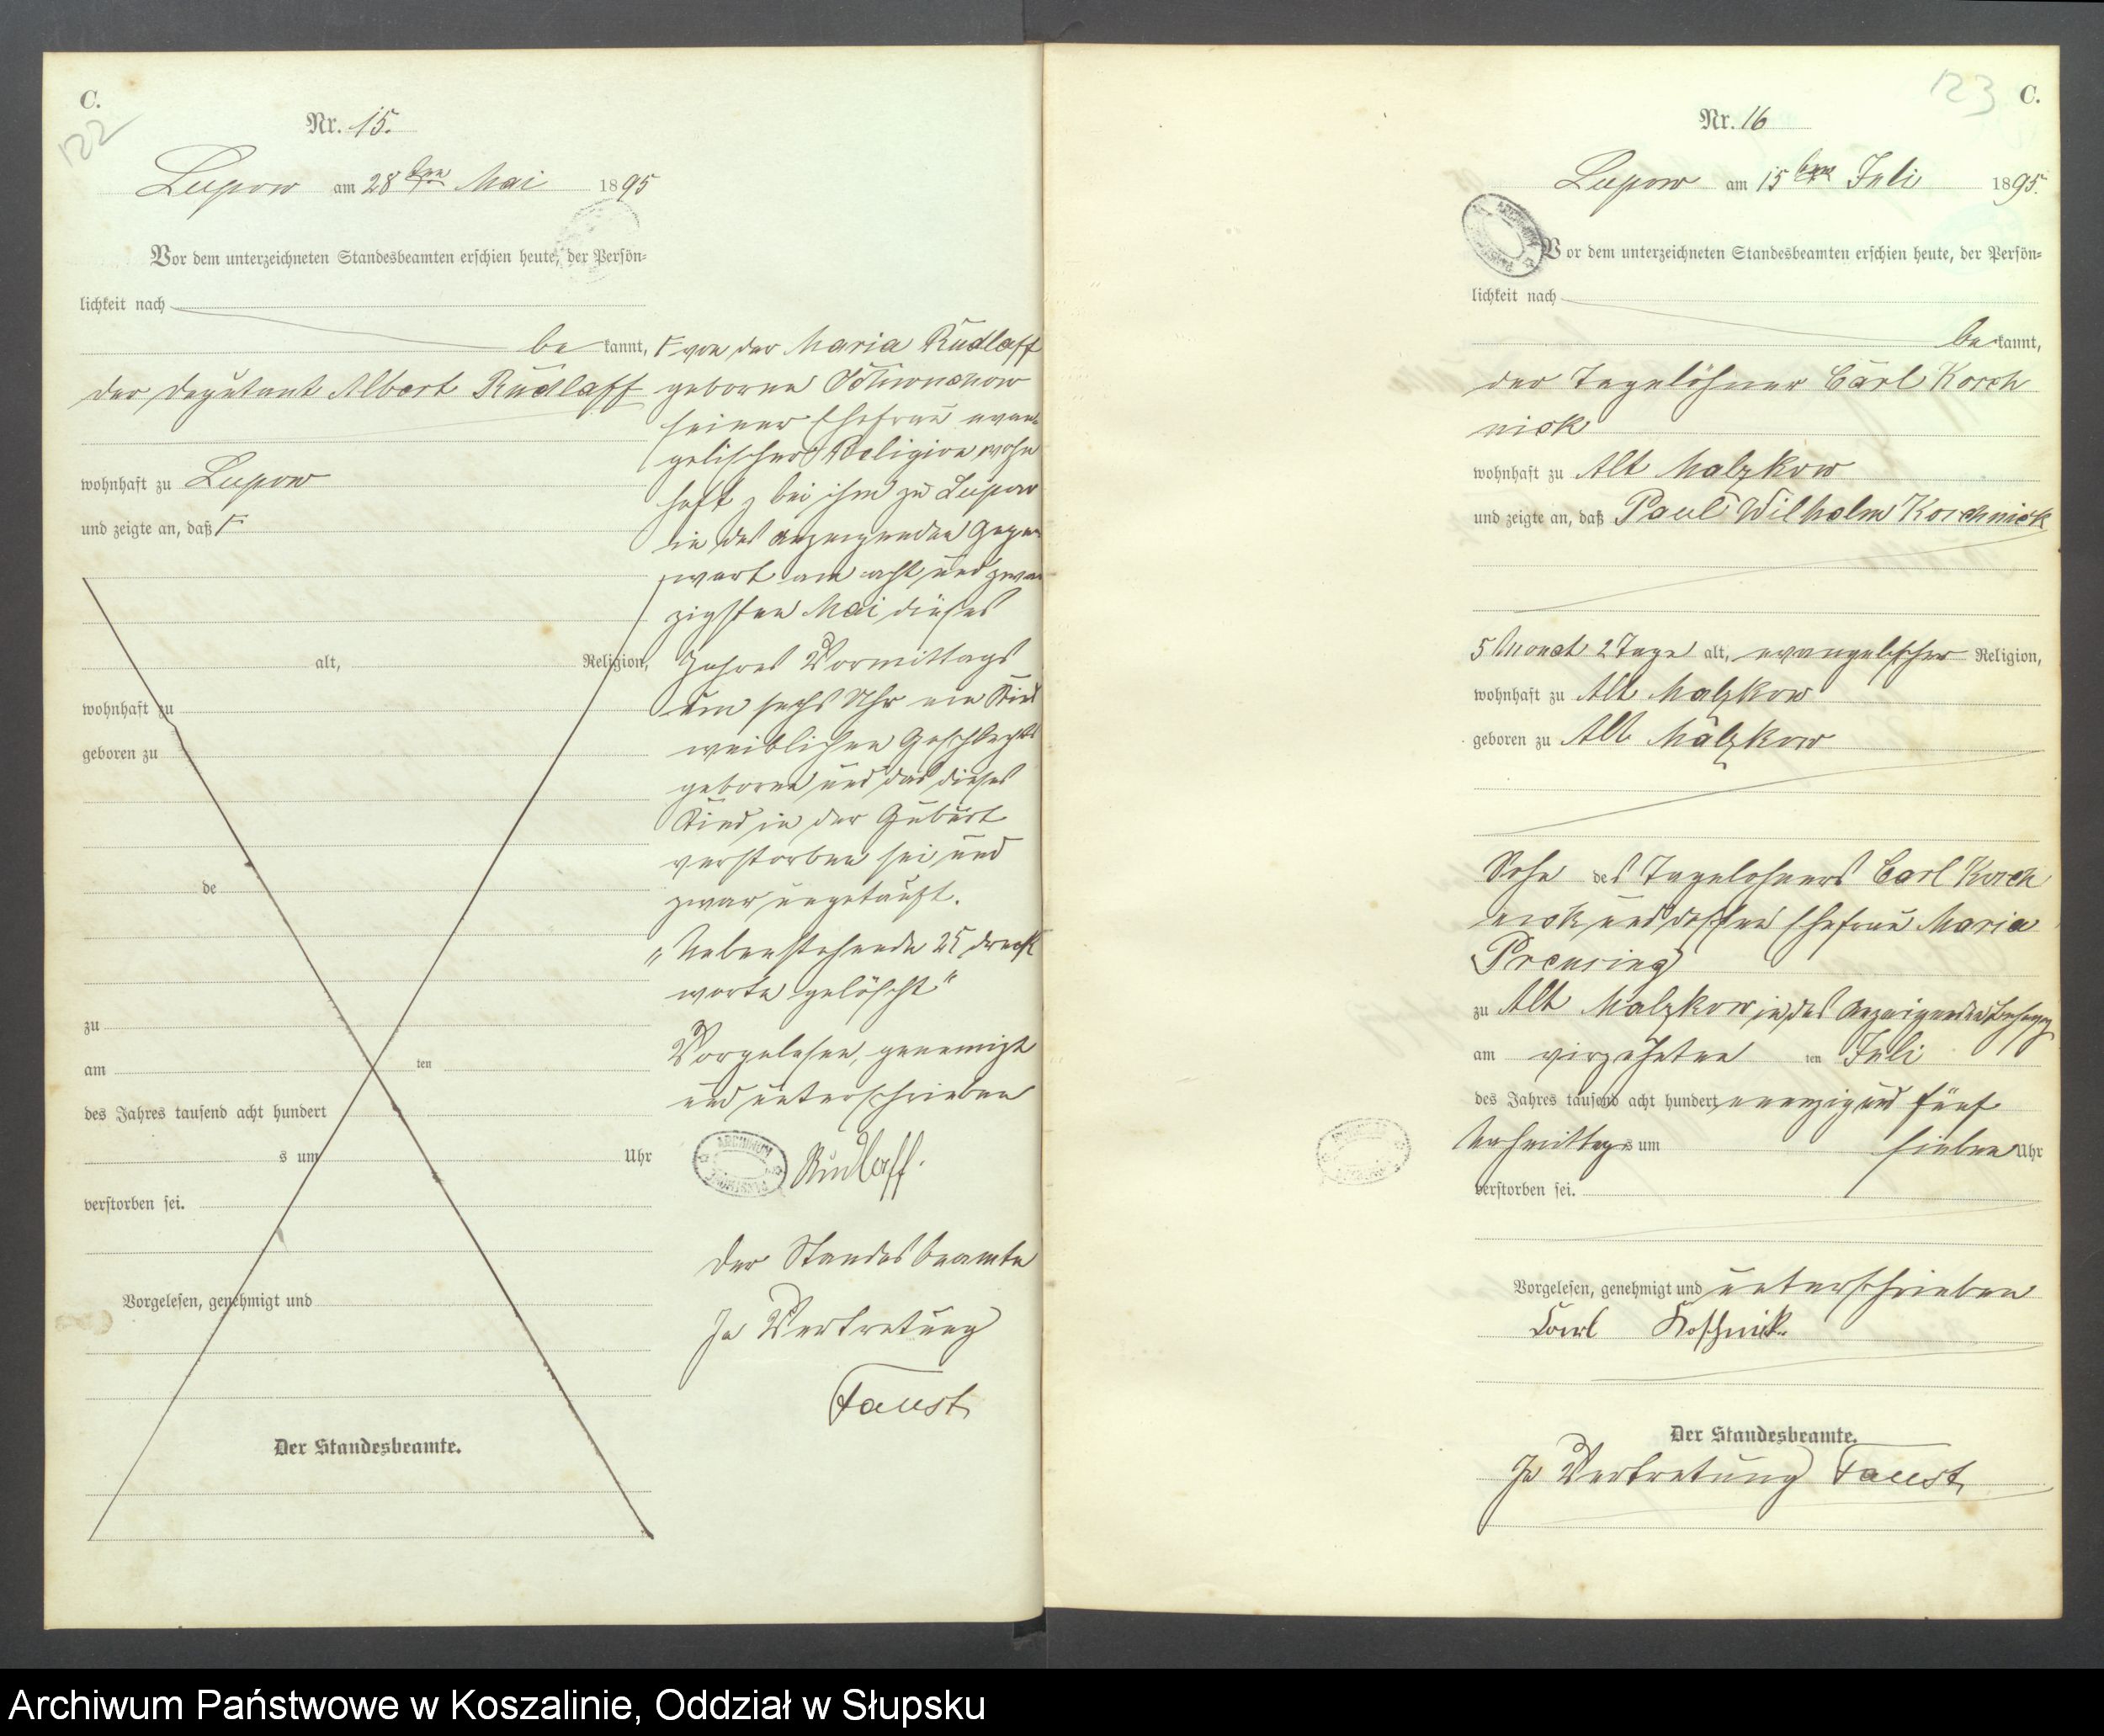 C.
122
Nr. 15.
Lupow am 28ten Mai 1895
Vor dem unterzeichneten Standesbeamten erschien heute, der Persön-
lichkeit nach
be kannt,
der Deputant Albert Rudlaff
wohnhaft zu Lupow
und zeigte an, daß Γ
alt, Religion,
wohnhaft zu
geboren zu
de
zu
am ten
des Jahres tausend acht hundert
s um Uhr
verstorben sei.
Vorgelesen, genehmigt und
Der Standesbeamte.
Γ von der Maria Rudlaff
geborne
seiner Ehefrau evan
gelischer Religion wohn
haft bei ihm zu Lupow
in des anzeigenden Gegen
wart am acht und zwan
zigsten Mai dieses
Jahres Vormittags
um sechs Uhr ein Kind
weiblichen Geschlechts
geboren und das dieses
Kind in der Geburt
verstorben sei und
zwar ungetauft.
„Nebenstehende 25 Druck
worte gelöscht"
Vorgelesen, genemigt
und unterschrieben
ARCHIWUM
Rudlaff.
Der Standesbeamte
In Vertretung
Faust
123
C.
Nr. 16
Lupow am 15ten Juli 1895.
ARCHIWUM
Vor dem unterzeichneten Standesbeamten erschien heute, der Persön-
lichkeit nach
be kannt,
der Tagelöhner Carl Korch
nick
wohnhaft zu Alt Malzkow
und zeigte an, daß Paul Wilhelm Korchnick
5 Monat 2 Tage alt, evangelischer Religion,
wohnhaft zu Alt Malzkow
geboren zu Alt Malzkow
Sohn des Tagelohners Carl Korch
nick und dessen Ehefrau Maria
zu Alt Malzkow in des Anzeigenden
am virzehnten ten Juli
des Jahres tausend acht hundert neunzig und fünf
Nachmittags um sieben Uhr
verstorben sei.
Vorgelesen, genehmigt und unterschrieben
Carl Koschnik.
Der Standesbeamte.
In Vertretung Faust
Archiwum Państwowe w Koszalinie, Oddział w Słupsku